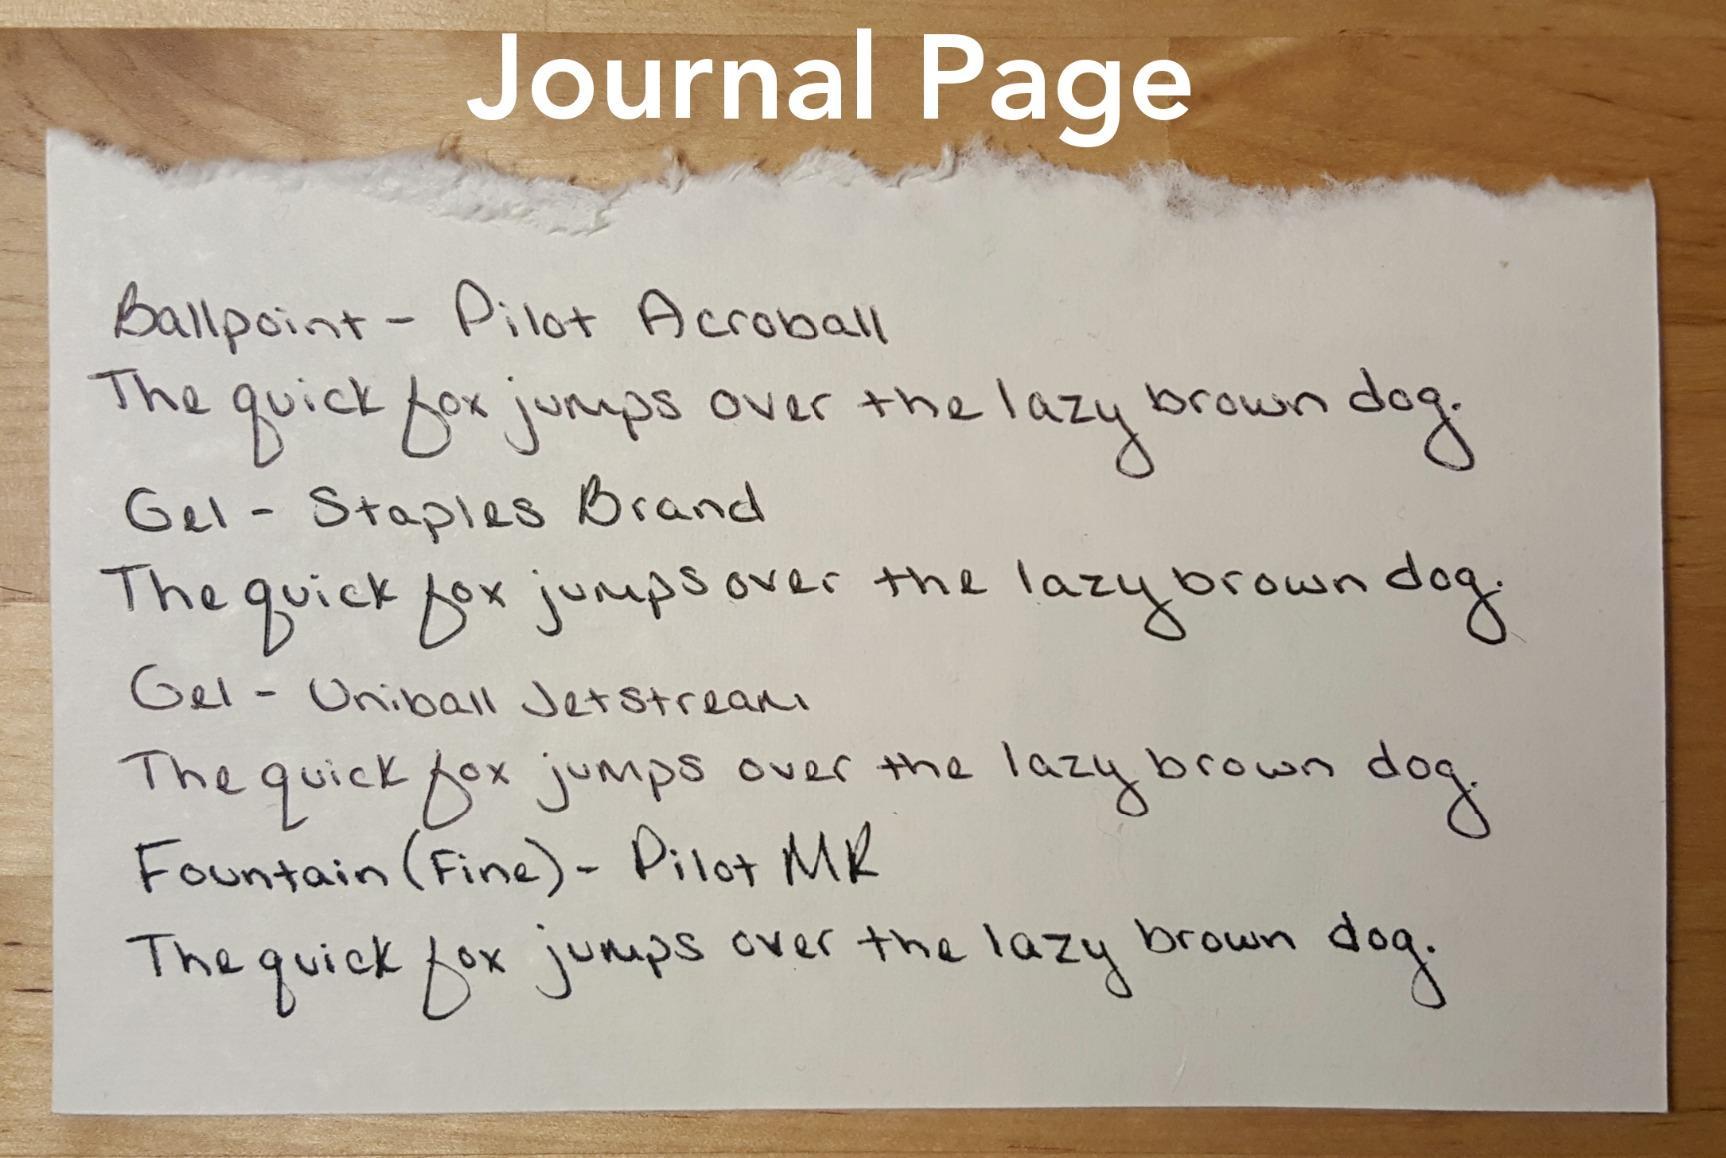 Journal Page
Ballpoint - Pilot Acroball
The quick fox jumps over the lazy brown dog.
Gel - Staples Brand
The quick fox jumps over the lazy brown dog.
Gel - Uniball Jetstream
The quick fox jumps over the lazy brown dog.
Fountain (Fine) - Pilot MR
The quick fox jumps over the lazy brown dog.